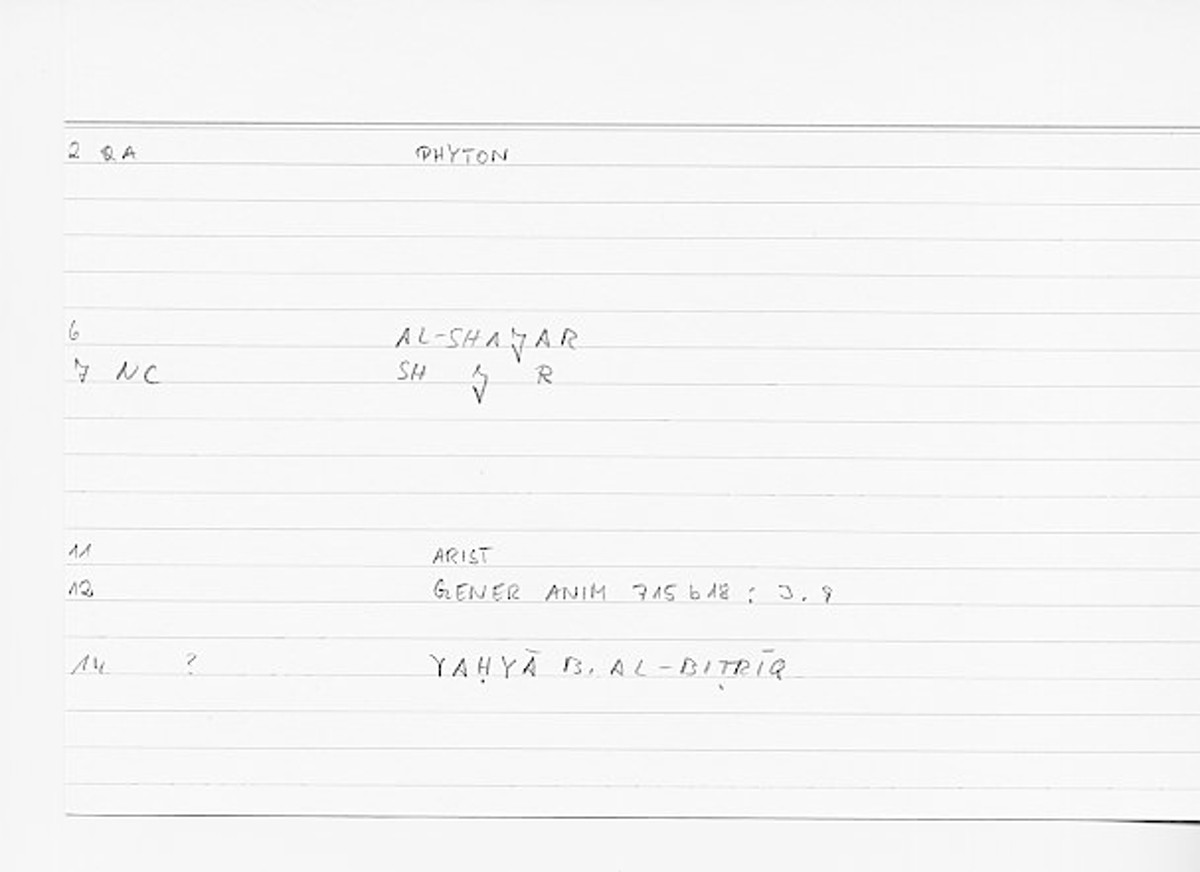 2 QA PHYTON
6 AL-SHAǰAR
7 NC SH ǰ R
11 ARIST
12 GENER ANIM 715 b 18 : 3. 9
14 ? YAḤYĀ B. AL-BIṬRĪQ